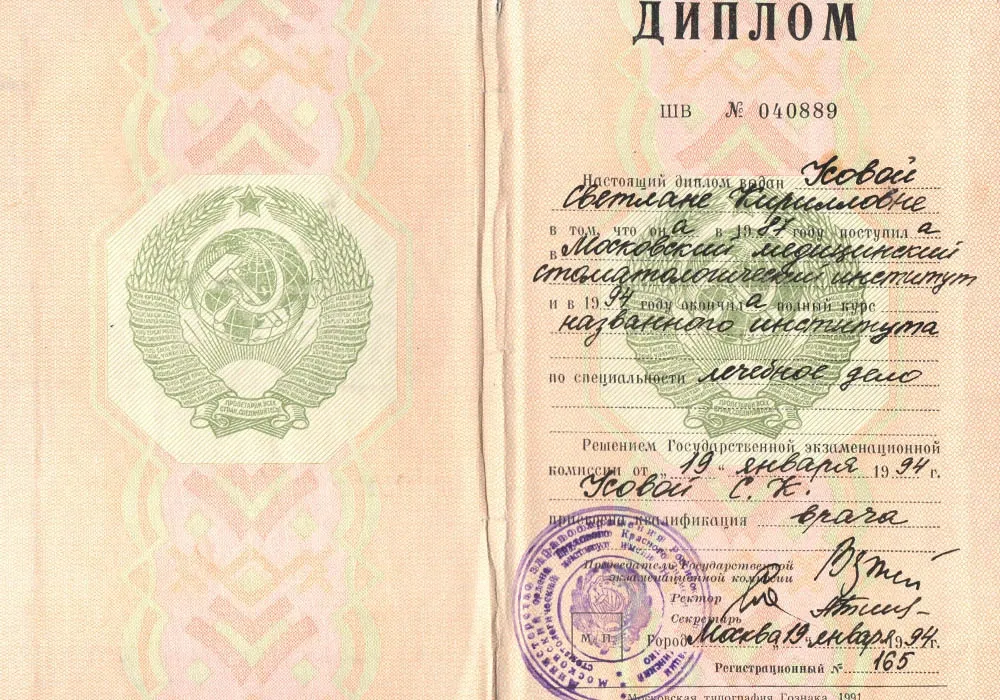 ПРОЛЕТАРИИ ВСЕХ
СТРАН, СОЕДИНЯЙТЕСЬ!
ДИПЛОМ
ШВ № 040889
Настоящий диплом выдан Усовой
Светлане Кирилловне
в том, что она в 1987 году поступила
в Московский медицинский
стоматологический институт
и в 1994 году окончила полный курс
названного института
по специальности лечебное дело
ПРОЛЕТАРИИ ВСЕХ
СТРАН, СОЕДИНЯЙТЕСЬ!
Решением Государственной экзаменационной
комиссии от „19“ января 1994 г.
Усовой С. К.
присвоена квалификация врача
Председатель Государственной
экзаменационной комиссии
Ректор
Секретарь
М. П. Город Москва 19 „ января 1994 г.
Регистрационный № 165
Московская типография Гознака. 1991.